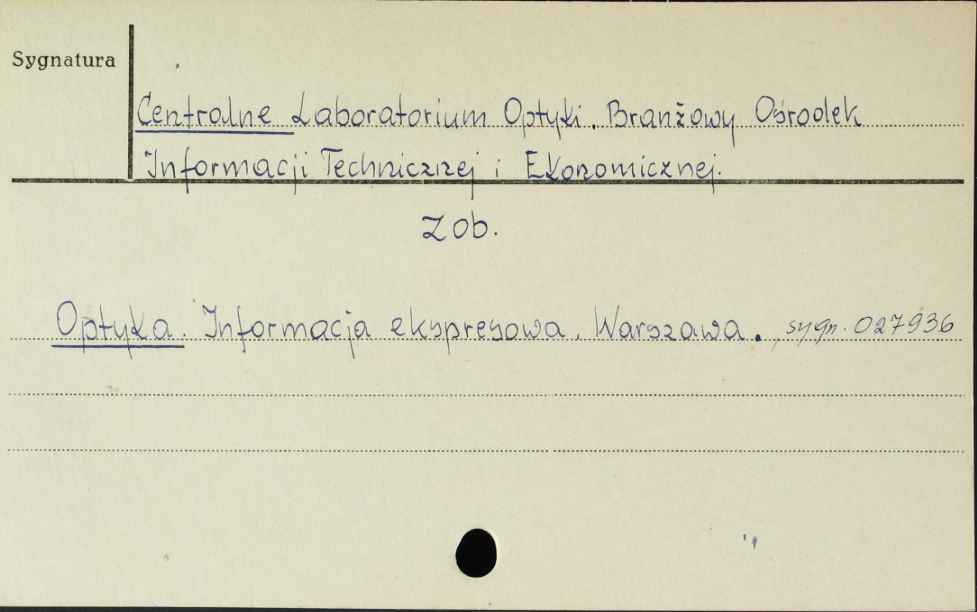 Sygnatura
Centralne Laboratorium Optyki. Branżowy Ośrodek
Informacji Technicznej i Ekonomicznej.
Zob.
Optyka. Informacja ekspresowa. Warszawa. , sygn. 027936